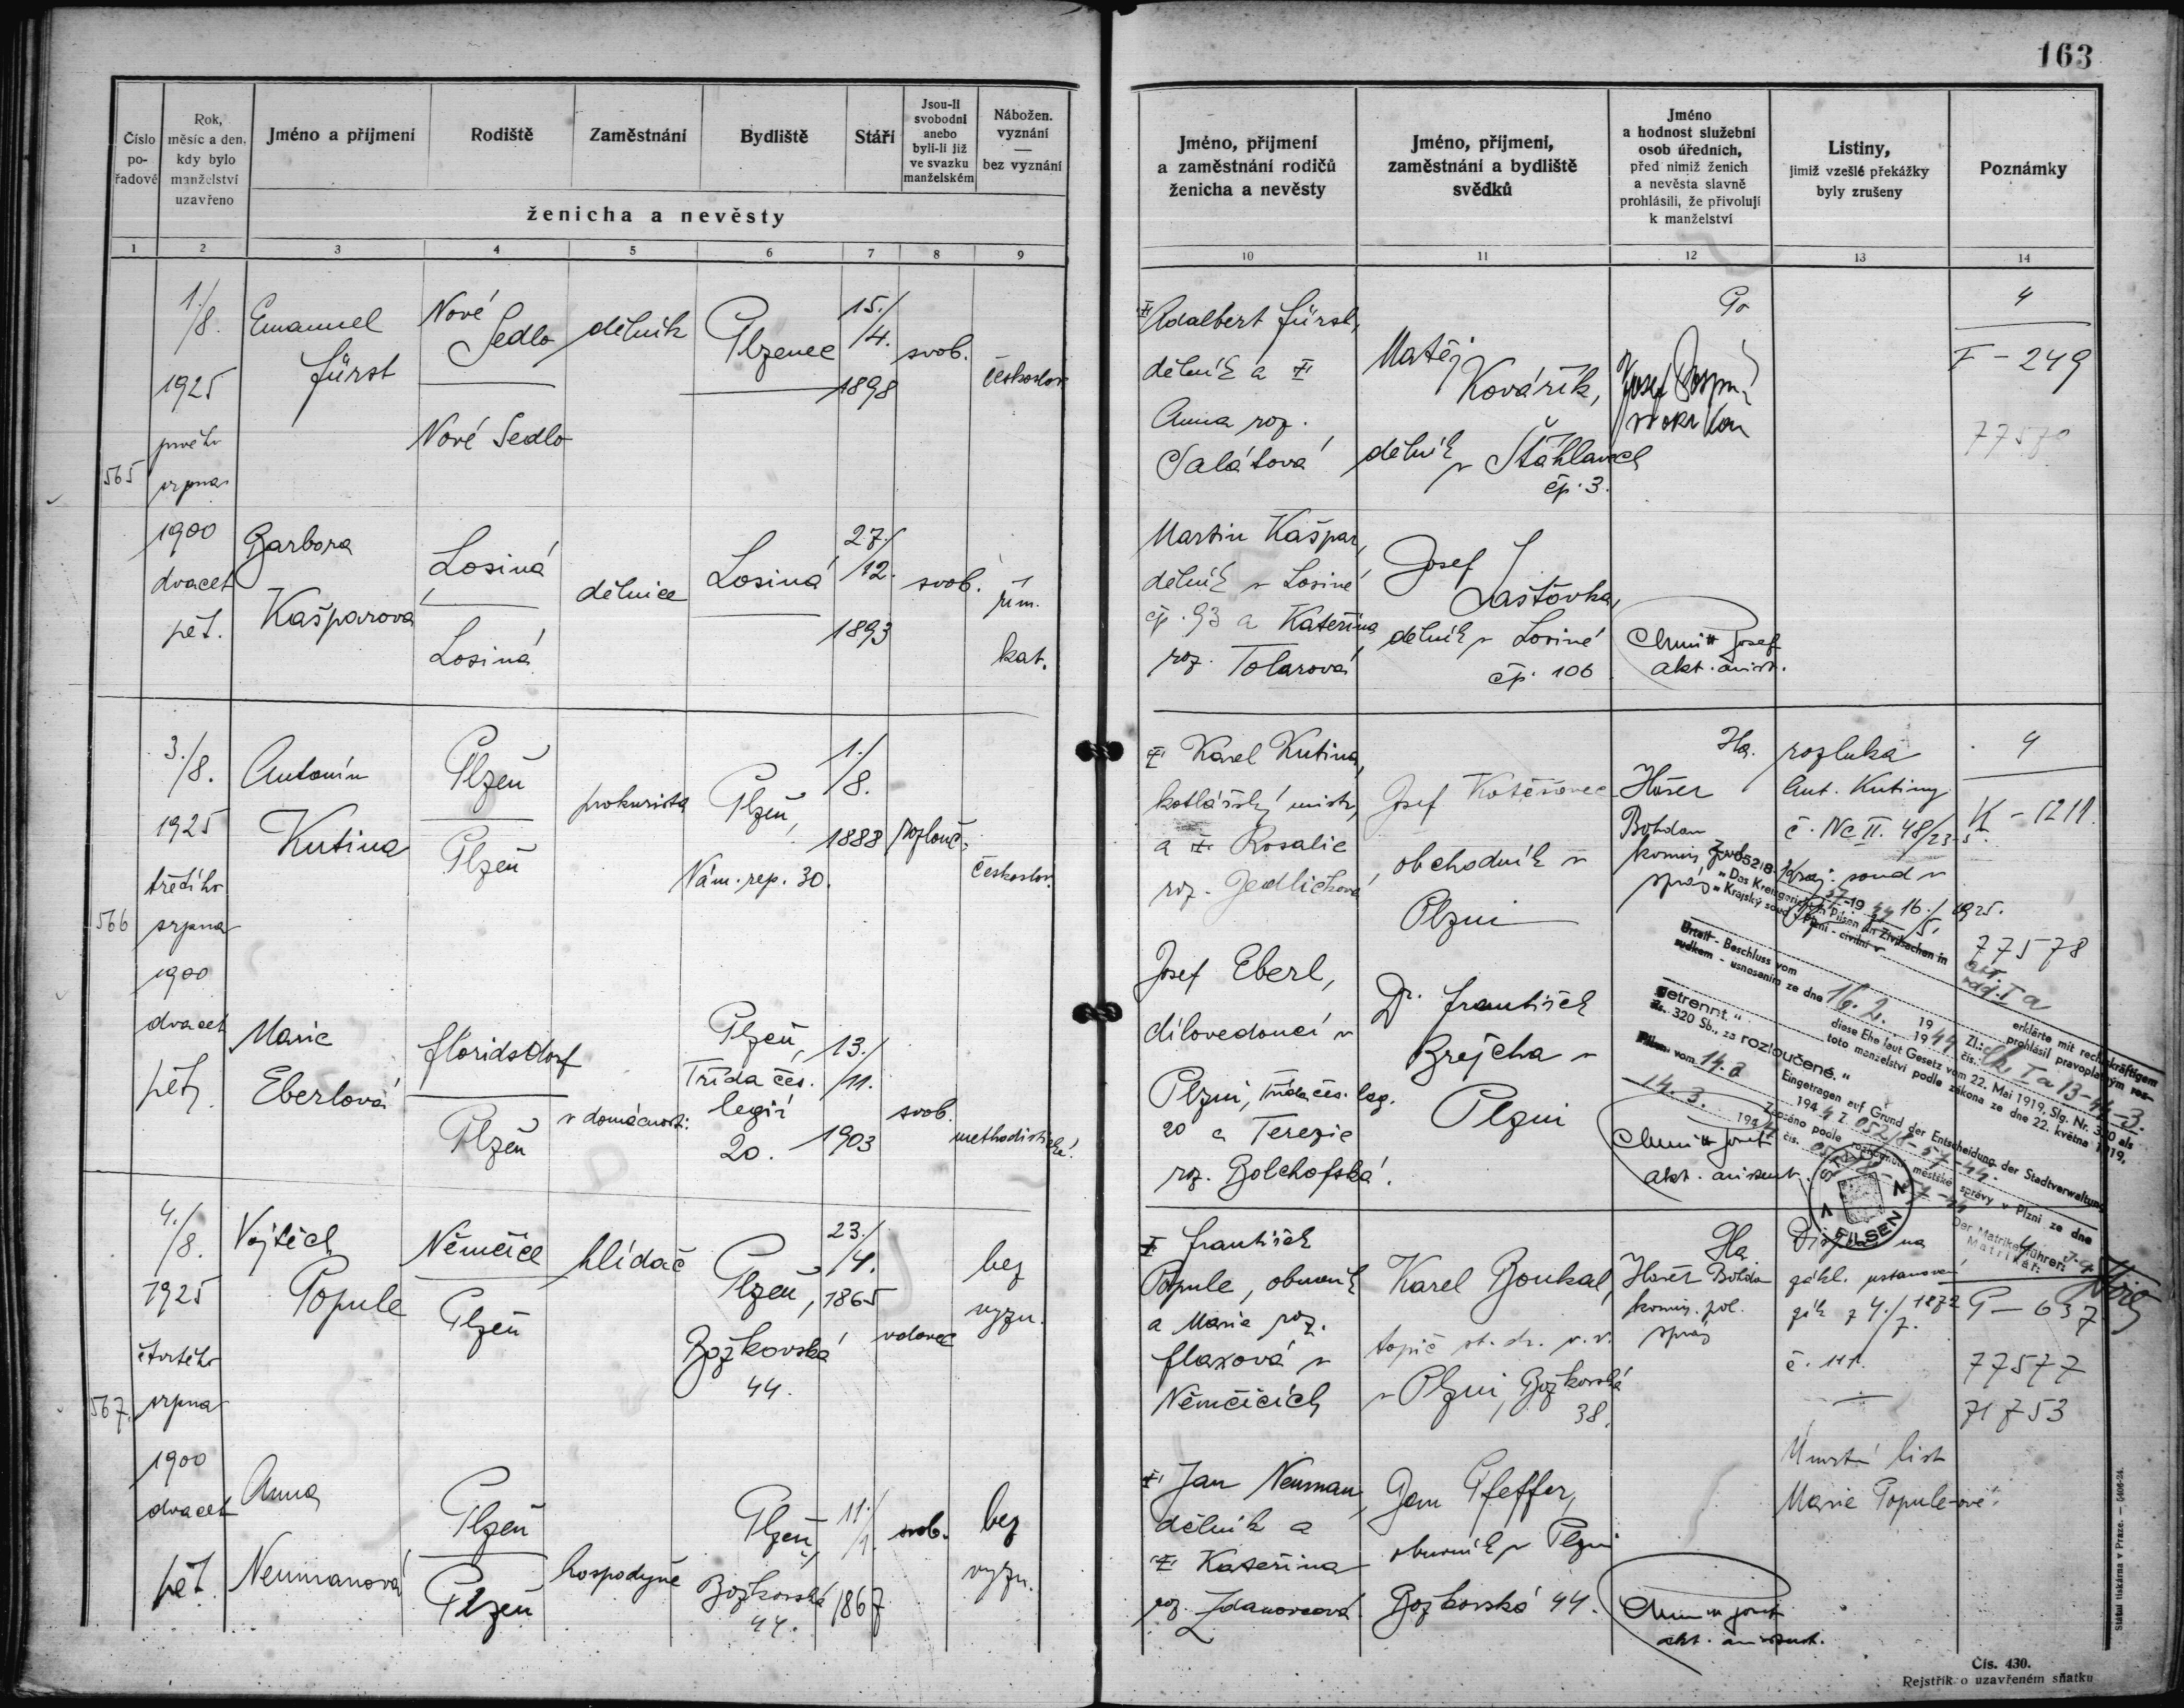 163
Číslo po-řadové
Rok, měsíc a den, kdy bylo manželství uzavřeno
Jméno a příjmení
Rodiště
Zaměstnání
Bydliště
Stáří
Jsou-li svobodni anebo byli-li již ve svazku manželském
Nábožen. vyznání — bez vyznání
ženicha a nevěsty
1 2 3 4 5 6 7 8 9
Jméno, příjmení a zaměstnání rodičů ženicha a nevěsty
Jméno, příjmení, zaměstnání a bydliště svědků
Jméno a hodnost služební osob úředních, před nimiž ženich a nevěsta slavně prohlásili, že přivolují k manželství
Listiny, jimiž vzešlé překážky byly zrušeny
Poznámky
10 11 12 13 14
565
1./8.
1925
prvého
srpna
1900
dvacet
pět.
Emanuel
Fürst
Nové
Sedlo
Nové Sedlo
dělník
Plzenec
15./4.
1898
svob.
českoslov.
Barbora
Kašparová
Losiná
Losiná
dělnice
Losiná
27./12.
1893
svob.
řím.
kat.
Adalbert Fürst,
dělník a
Anna roz.
Salátová
Matěj
Kovářík,
dělník
v Štáhlavech
čp. 3.
Josef
4
F - 249
77579
Martin Kašpar,
dělník v Losiné
čp. 93 a Kateřina
roz. Tolarová
Josef
Laštovka,
dělník v Losiné
čp. 106
Josef
akt. asist.
566
3./8.
1925
třetího
srpna
1900
dvacet
pět
Antonín
Kutina
Plzeň
Plzeň
prokurista
Plzeň,
Nám. rep. 30.
1./8.
1888
rozlouč.
českoslov.
Marie
Eberlová
Floridsdorf
Plzeň
v domácnosti
Plzeň,
Třída čes.
legií
20.
13./11.
1903
svob.
methodistické
Karel Kutina,
kotlářský mistr,
a Rosalie
roz. Jedličková
Josef
obchodník v
Plzni
Ha.
Bohdan
komis.
správ
rozluka
Ant. Kutiny
č. Nc II. 48/23-5
kraj. soud v
16./5. 1925.
4
K - 1211.
77578
Josef Eberl,
dílovedoucí v
Plzni, Třída čes. leg.
20 a Terezie
roz. Bolchofská.
Dr. František
Brejcha v
Plzni
akt. asistent.
"Das Kreisgericht in Pilsen in Zivilsachen in
"Krajský soud v Plzni - civilní v
Urteil - Beschluss vom 16. 2. 1944 Zl.: Ck I a 13-44-3. erklärte mit rechtskräftigem
sudkem - usnesením ze dne 1944 čís. prohlásil pravoplatným roz-
diese Ehe laut Gesetz vom 22. Mai 1919, Slg. Nr. 320 als
toto manželství podle zákona ze dne 22. května 1919,
getrennt."
čís. 320 Sb., za rozloučené."
Eingetragen auf Grund der Entscheidung der Stadtverwaltung
Pilsen vom 14. 3. 1944 Z.
Zapsáno podle rozhodnutí městské správy v Plzni ze dne
14. 3. 1944 čís.
Der Matrikenführer:
Matrikář:
PILSEN
567.
4./8.
1925
čtvrtého
srpna
1900
dvacet
pět.
Vojtěch
Popule
Němčice
Plzeň
hlídač
Plzeň,
Božkovská
44.
23./4.
1865
vdovec
bez
vyzn.
Anna
Neumanová
Plzeň
Plzeň
hospodyně
Plzeň,
Božkovská
44.
11./1.
1867
svob.
bez
vyzn.
František
Popule, obuvník
a Marie roz.
Flaxová v
Němčicích
Karel Boukal,
topič st. dr. v. v.
v Plzni, Božkovská
38.
Ha.
Bohdan
komis. pol.
správ
na
zákl. ustanovení
zák. z 4./7. 1872
č. 111.
P - 637
77577
71753
Jan Neuman,
dělník a
Kateřina
roz. Zdanovcová
Jan Pfeffer,
obuvník v Plzni
Božkovská 44.
akt. asistent.
Úmrtní list
Marie Populeové.
Státní tiskárna v Praze. — 5406-24.
Čís. 430.
Rejstřík o uzavřeném sňatku